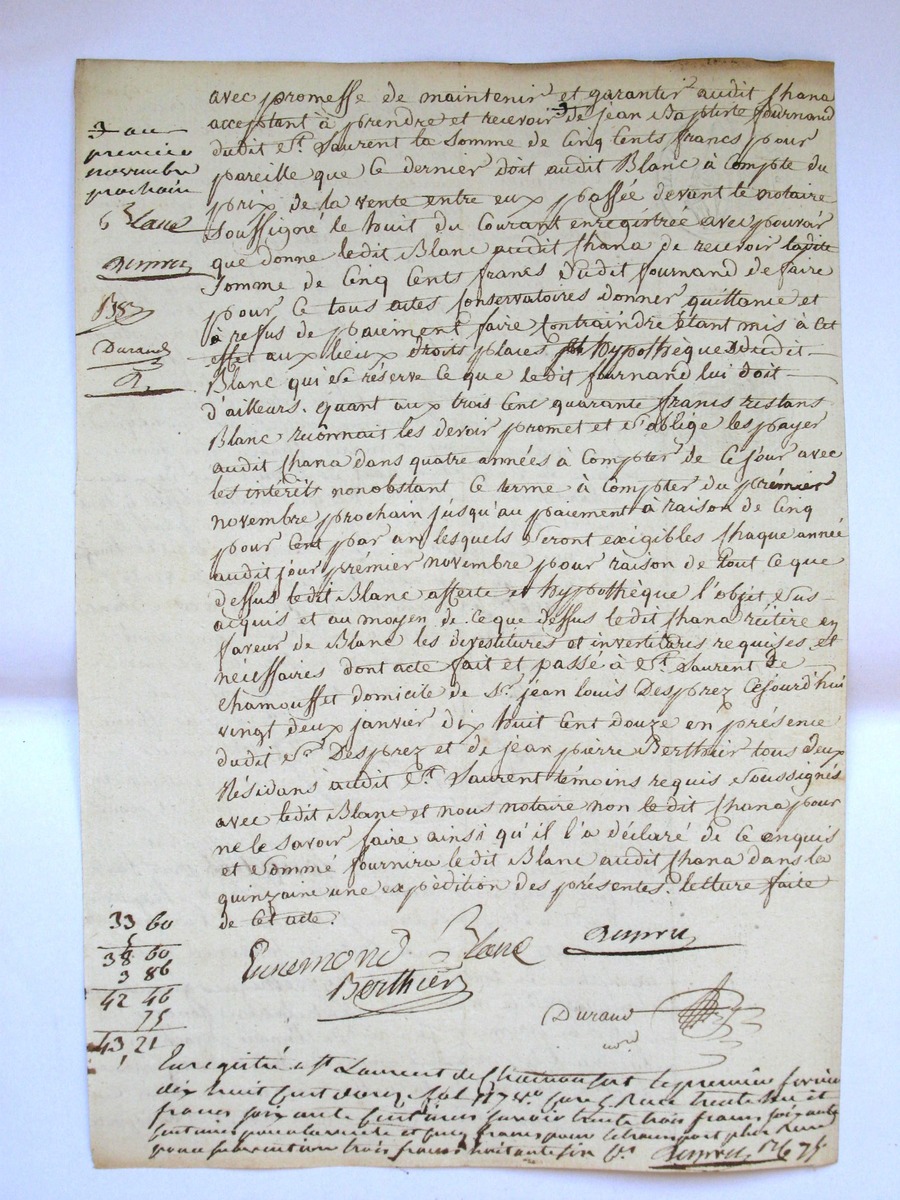 avec promesse de maintenir et garantir audit Chana
acceptant à prendre et recevoir de jean Baptiste fournand
dudit St. Laurent la somme de Cinq Cents francs pour
pareille que ce dernier doit audit Blanc à compte du
prix de la vente entre eux passée devant le notaire
soussigné le huit du Courant enregistrée avec pouvoir
que donne ledit Blanc audit Chana de recevoir ladite
somme de Cinq Cents francs dudit fournand de faire
pour Ce tous actes Conservatoires donner quittance et
à refus de paiement faire Contraindre étant mis à Cet
effet aux lieux droits places et hypothèque dudit
Blanc qui se réserve Ce que ledit fournand lui doit
d'ailleurs. quant aux trois Cent quarante francs restans
Blanc reconnait les devoir promet et s'oblige les payer
audit Chana dans quatre années à Compter de Ce jour avec
les intérêts nonobstant Ce terme à Compter du prémier
novembre prochain jusqu'au paiement à raison de Cinq
pour Cent par an lesquels seront exigibles Chaque année
audit jour prémier novembre pour raison de tout Ce que
dessus ledit Blanc affecte et hypothèque l'objet sus
acquis et au moyen de Ce que dessus ledit Chana réitere en
faveur de Blanc les divestitures et investitures requises et
nécessaires dont acte fait et passé à St. Laurent de
Chamousset domicile de Sr. jean Louis Desprez Cejourd'hui
vingt deux janvier dix huit Cent douze en présence
dudit Sr. Desprez et de jean pierre Berthier tous deux
Résidans audit St. Laurent témoins requis soussignés
avec ledit Blanc et nous notaire non ledit Chana pour
ne le savoir faire ainsi qu'il l'a déclaré de Ce enquis
et sommé fournira ledit Blanc audit Chana dans la
quinzaine une expédition des présentes. lecture faite
de Cet acte.
au
premier
novembre
prochain
Blanc
Desprez
B
Durand
33 60
5
38 60
3 86
42 46
75
43, 21
Ennemond Blanc
Desprez
Berthier
Durand
nore
Enregistré a St Laurent de Chamousset le premier fevrier
dix huit Cent douze fol 117 Vo Reçu trente huit
francs soixante Centimes savoir trente trois francs soixante
Centimes pour la vente et Cinq francs pour le transport plus Reçu
pour subvention trois francs huitante six Cs Desprez 75